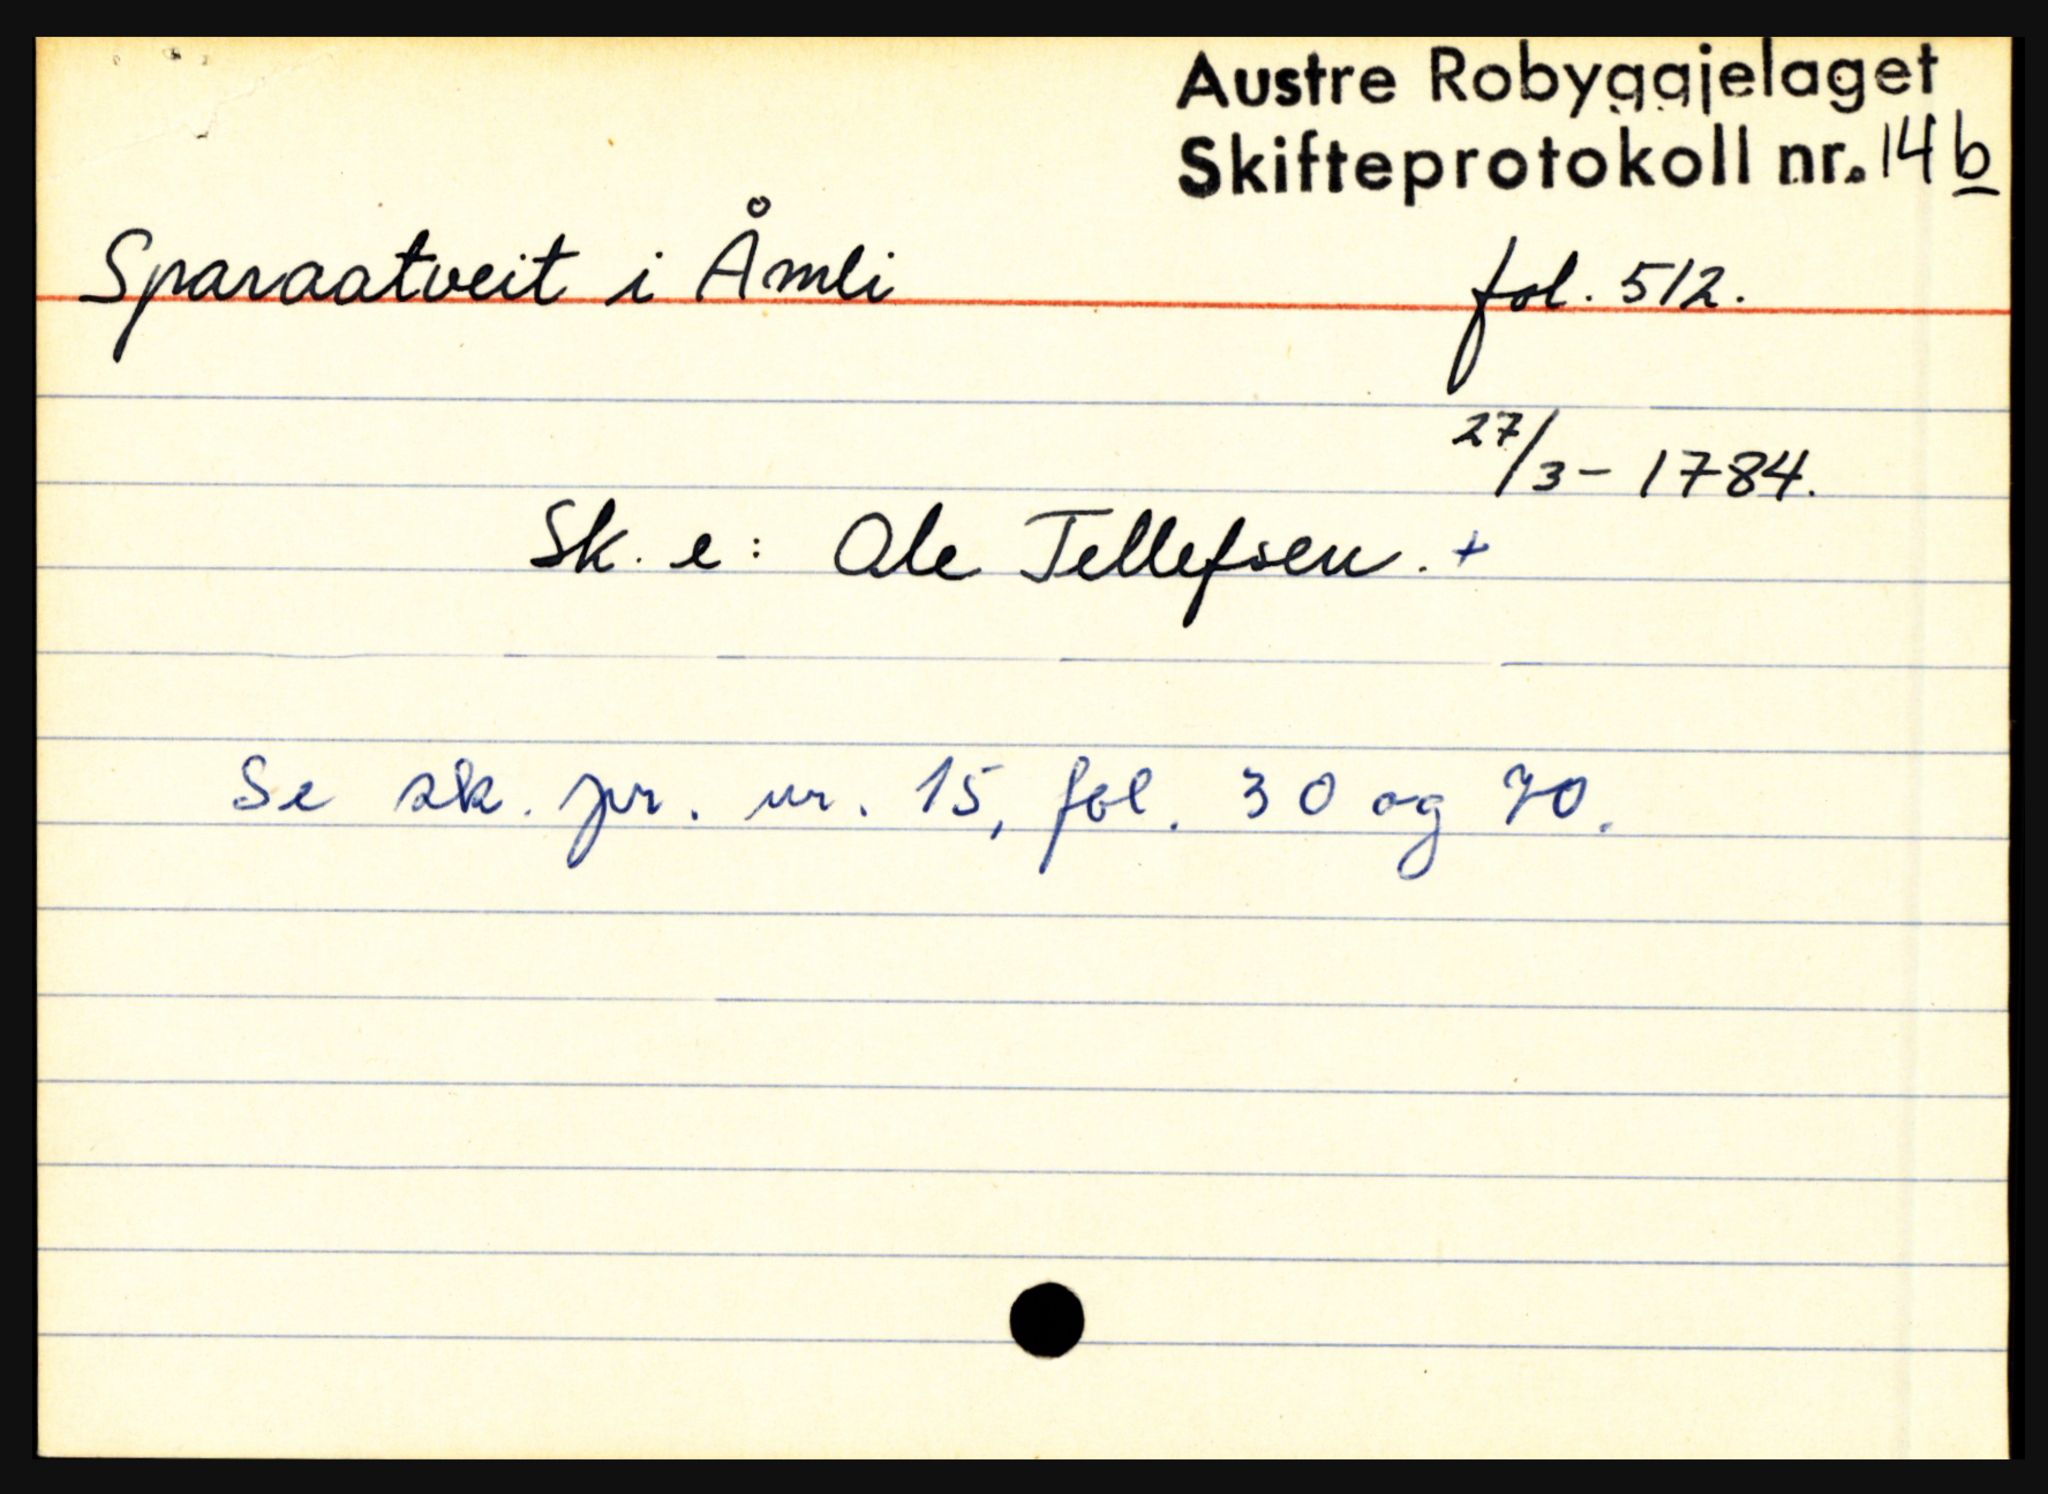 Austre Robyggjelaget
Skifteprotokoll nr. 14 b
Sparaatveit i Åmli fol. 512.
27/3 - 1784.
Sk. e: Ole Tellefsen. +
Se sk. pr. nr. 15, fol. 30 og 70.